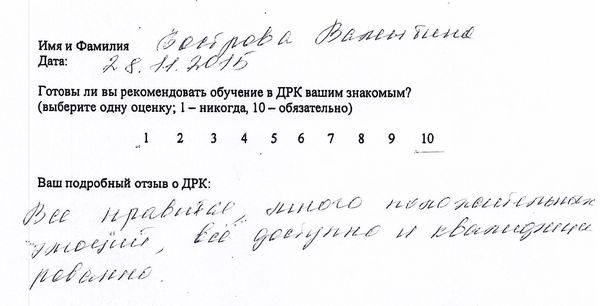 Имя и Фамилия Вострова Валентина
Дата: 28.11.2015
Готовы ли вы рекомендовать обучение в ДРК вашим знакомым?
(выберите одну оценку; 1 – никогда, 10 – обязательно)
1 2 3 4 5 6 7 8 9 10
Ваш подробный отзыв о ДРК:
Все нравится, много положительных
эмоций, всё доступно и квалифици
рованно.